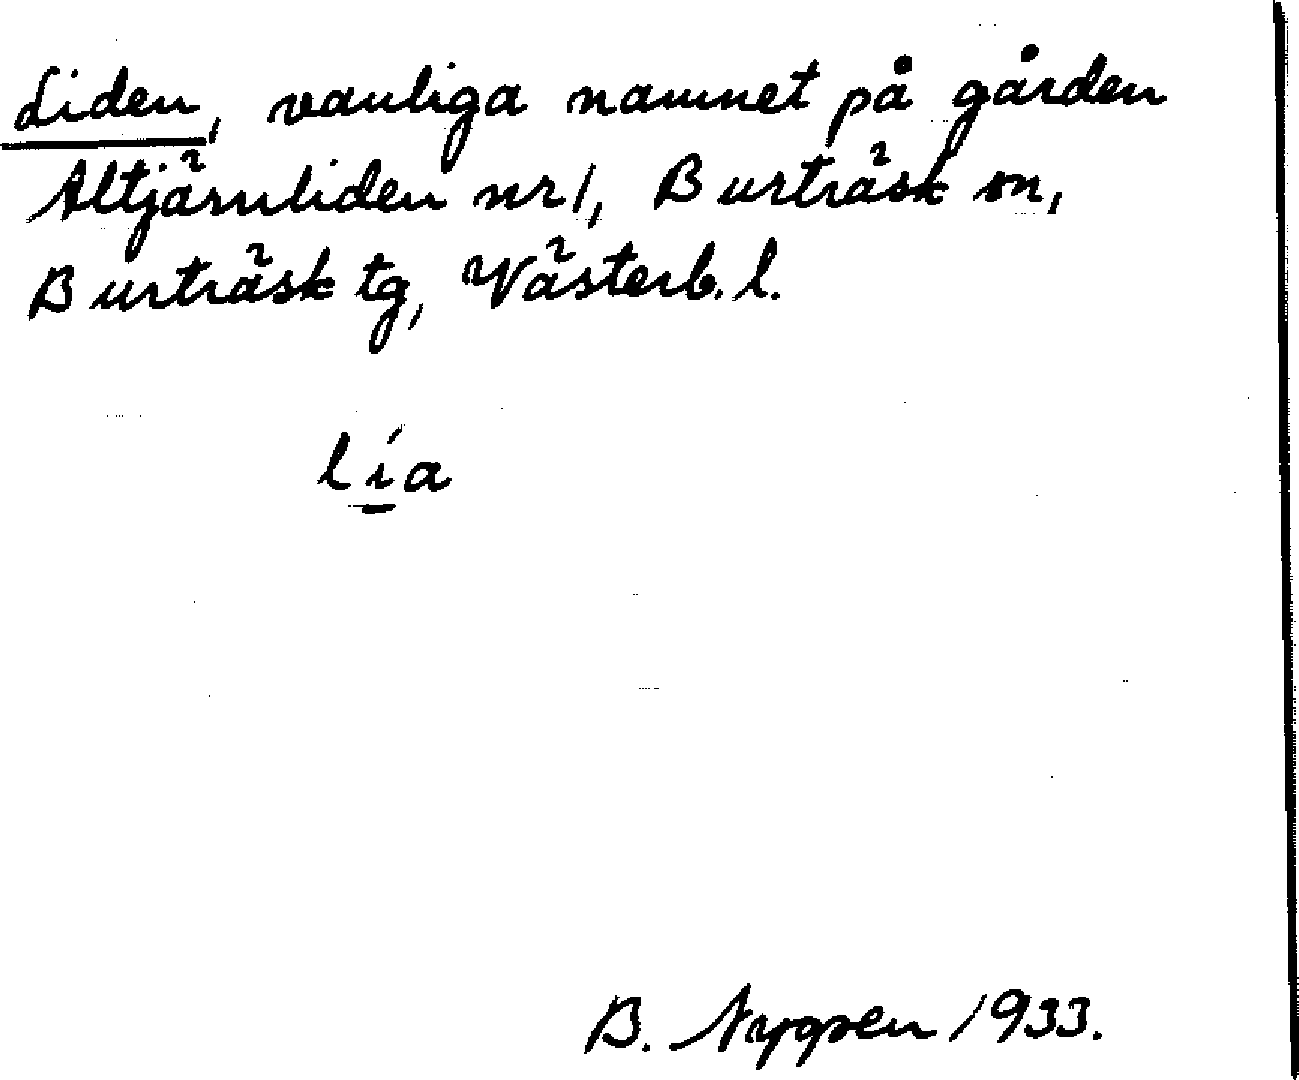 Liden, vanliga namnet på gården
Altjärnliden nr 1, Burträsk sn,
Burträsk tg, Västerb. l.
lía
B. Nygren 1933.